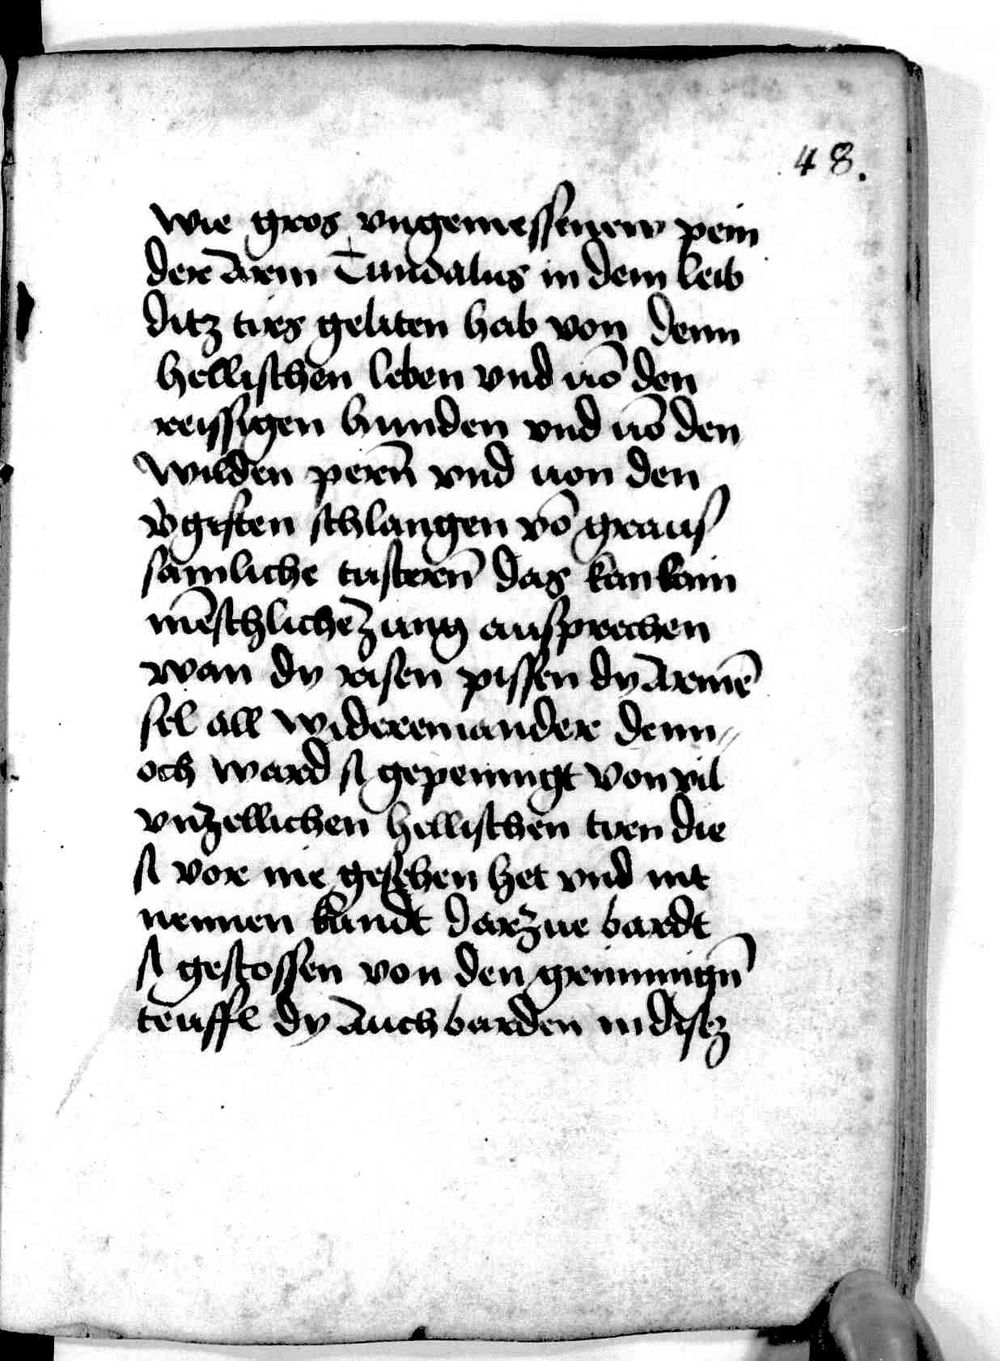 48.
wie gros vngemessenew pein
der Arm Tundalus in dem leib
ditz tirs geliten hab von denn
hellischen leben vnd uō den
reissigen hunden vnd uō den
wilden pern̄ vnd uon den
v̄giften schlangen vō graus
samliche tristern̄ das kan kain
mēschliche Zung aussprechen
wan dy risen pissen dy Armē
sel all wider einander denn„
och ward si gepeinigt von vil
vnzellichen hellischen tiren die
si vor nie gesehen het vnd nit
nennen kundt darzue bardt
si gestossen von den grimmign̄
teuffl dy Auch barden in disez